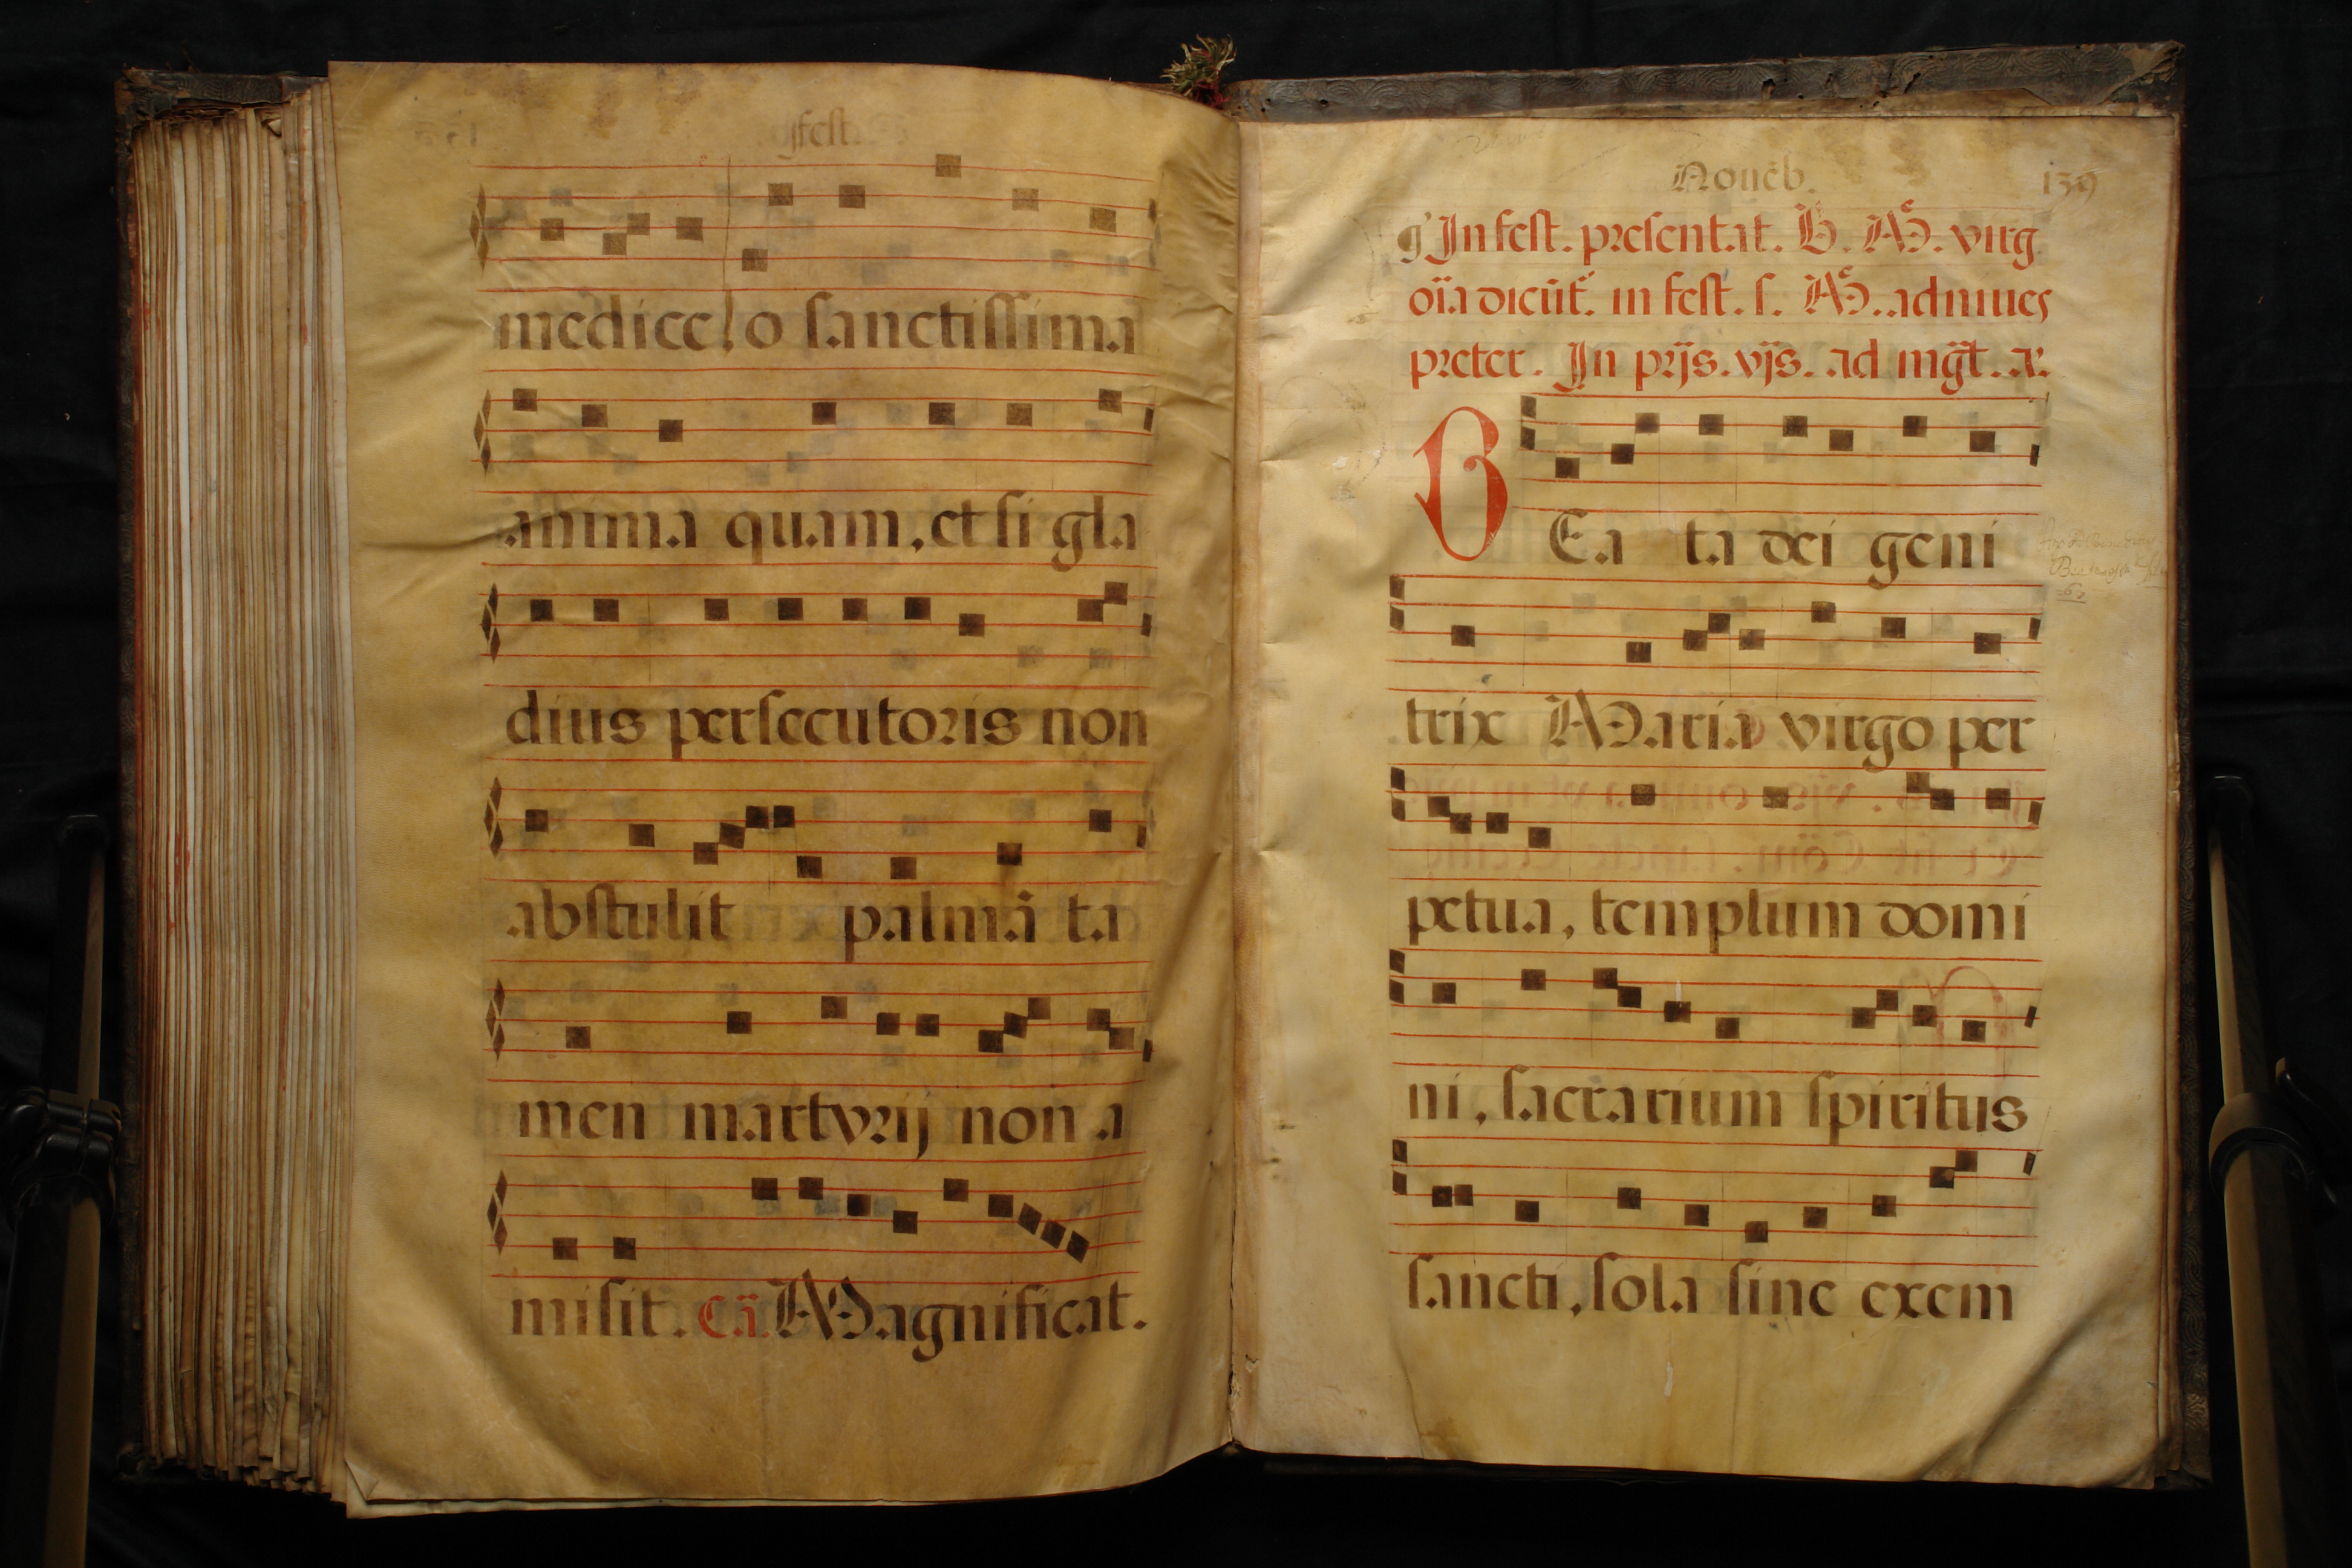 medice! o sanctissima
anima quam, et si gla
dius persecutoris non
abstulit palmā ta
men martyrij non a
misit. Cā. Magnificat.
Nouēb. 139
In fest. presentat. B. M. virg
oīa dicūt. in fest. s. M. ad niues
preter. In prijs. vjs. ad mḡt. a.
BEa ta dei geni
trix Maria virgo per
petua, templum domi
ni, sacrarium spiritus
sancti, sola sine exem